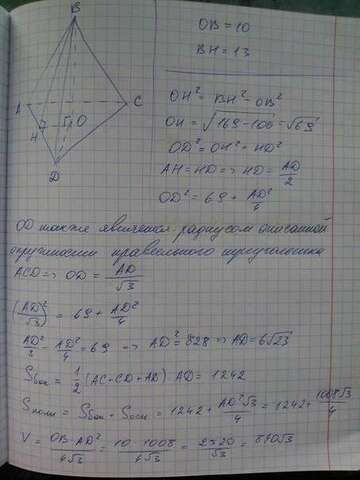 B
OB = 10
BH = 13
A
C
H
O
D
OH² = BH² - OB²
OH = √169-100 = √69
OD² = OH² + HD²
AH = HD => HD = AD/2
OD² = 69 + AD²/4
OD также является радиусом описанной
окружности правильного треугольника
ACD => OD = AD/√3
(AD/√3)² = 69 + AD²/4
AD²/3 - AD²/4 = 69 => AD² = 828 => AD = 6√23
Sбок = 1/2 (AC+CD+AD) AD = 1242
Sполн = Sбок + Sосн = 1242 + AD²√3/4 = 1242 + 1008√3/4
V = OB·AD²/4√3 = 10·1008/4√3 = 2520/√3 = 840√3